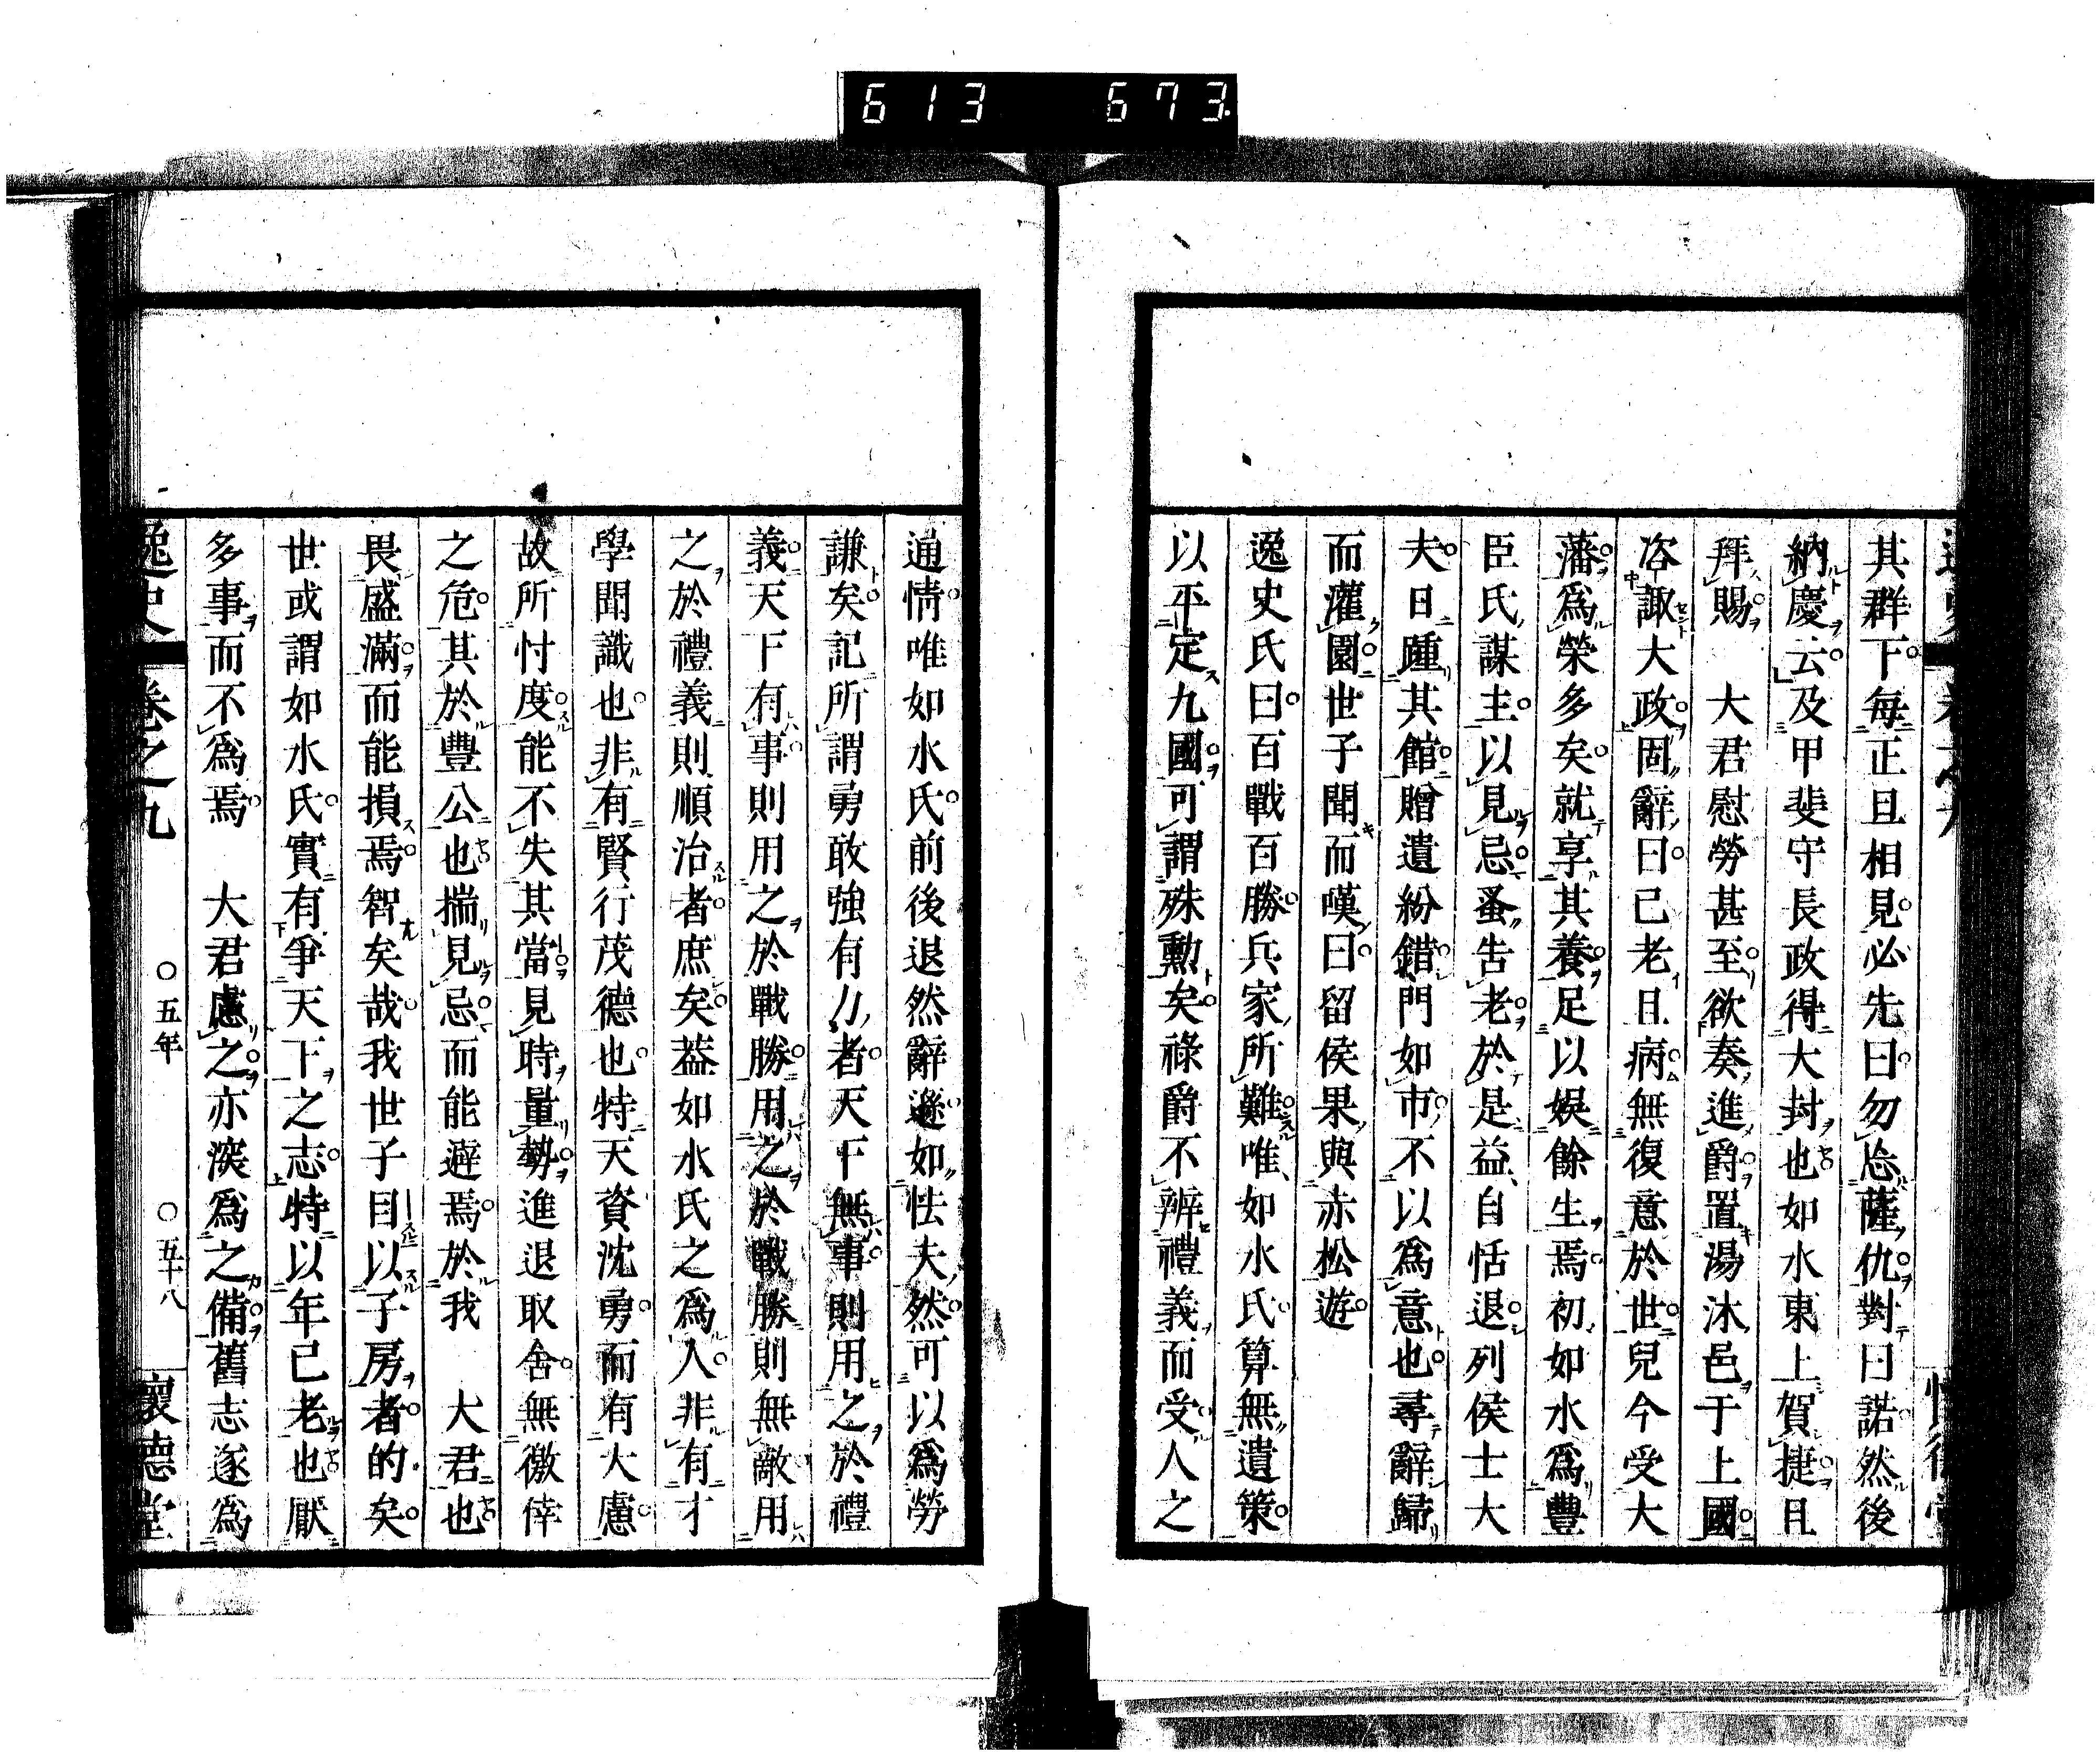 613 673
其群下每正旦相見必先曰勿忘薩仇對曰諾然後
納慶云及甲斐守長政得大封也如水東上賀捷且
拜賜　大君慰勞甚至欲奏進爵置湯沐邑于上國
咨諏大政固辭曰已老且病無復意於世兒今受大
藩爲榮多矣就享其養足以娛餘生焉初如水爲豐
臣氏謀主以見忌蚤告老於是益自恬退列侯士大
夫日踵其館贈遺紛錯門如市不以爲意也尋辭歸
而灌園世子聞而嘆曰留侯果與赤松遊
逸史氏曰百戰百勝兵家所難唯如水氏算無遺策
以平定九國可謂殊勳矣祿爵不辨禮義而受人之
通情唯如水氏前後退然辭遜如怯夫然可以爲勞
謙矣記所謂勇敢強有力者天下無事則用之於禮
義天下有事則用之於戰勝用之於戰勝則無敵用
之於禮義則順治者庶矣葢如水氏之爲人非有才
學聞識也非有賢行茂德也特天資沈勇而有大慮
故所忖度能不失其當見時量勢進退取舍無徼倖
之危其於豐公也揣見忌而能避焉於我　大君也
畏盛滿而能損焉智矣哉我世子目以子房者的矣
世或謂如水氏實有爭天下之志特以年已老也厭
多事而不爲焉　大君慮之亦深爲之備舊志遂爲
逸史　卷之九　〇五年　〇五十八　懷德堂